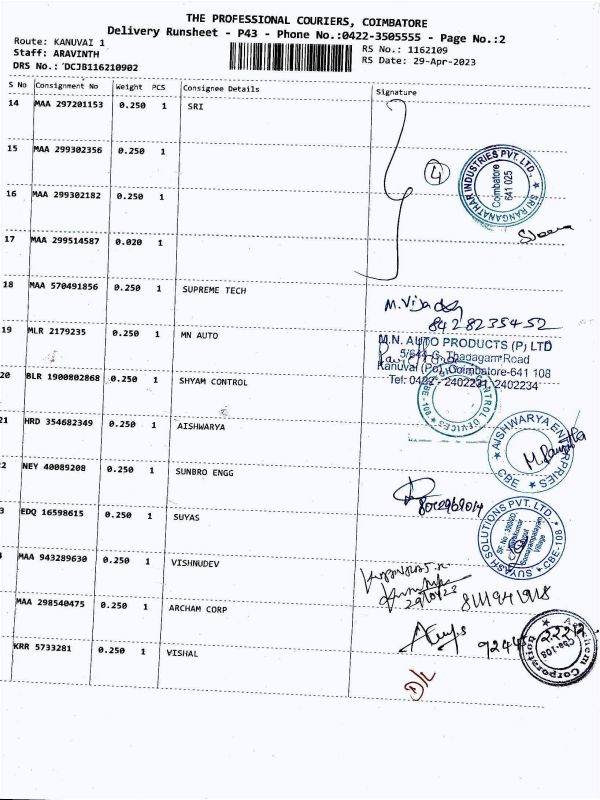 THE PROFESSIONAL COURIERS, COIMBATORE
Delivery Runsheet - P43 - Phone No.:0422-3505555 - Page No.:2
Route: KANUVAI 1
RS No.: 1162109
Staff: ARAVINTH
RS Date: 29-Apr-2023
DRS No.: DCJB116210902
S No Consignment No Weight PCS Consignee Details Signature
14 MAA 297201153 0.250 1 SRI
15 MAA 299302356 0.250 1
4
SRI RANGANATHAR INDUSTRIES PVT. LTD.
Coimbatore
641 025
16 MAA 299302182 0.250 1
17 MAA 299514587 0.020 1
18 MAA 570491856 0.250 1 SUPREME TECH
8428235452
19 MLR 2179235 0.250 1 MN AUTO
M.N. AUTO PRODUCTS (P) LTD
5/644-G, Thadagam Road
Kanuvai (Po), Coimbatore-641 108
Tel: 0422 - 2402231, 2402234
20 BLR 1900802868 0.250 1 SHYAM CONTROL
CONTROL DEVICES
CBE - 108
21 HRD 354682349 0.250 1 AISHWARYA
AISHWARYA ENTERPRIES
CBE
2 NEY 40089208 0.250 1 SUNBRO ENGG
3 EDQ 16598615 0.250 1 SUYAS
SUYASH SOLUTIONS PVT. LTD.
CBE-108
Village
MAA 943289630 0.250 1 VISHNUDEV
MAA 298540475 0.250 1 ARCHAM CORP
Corporation
Cbe-108
KRR 5733281 0.250 1 VISHAL
D/L